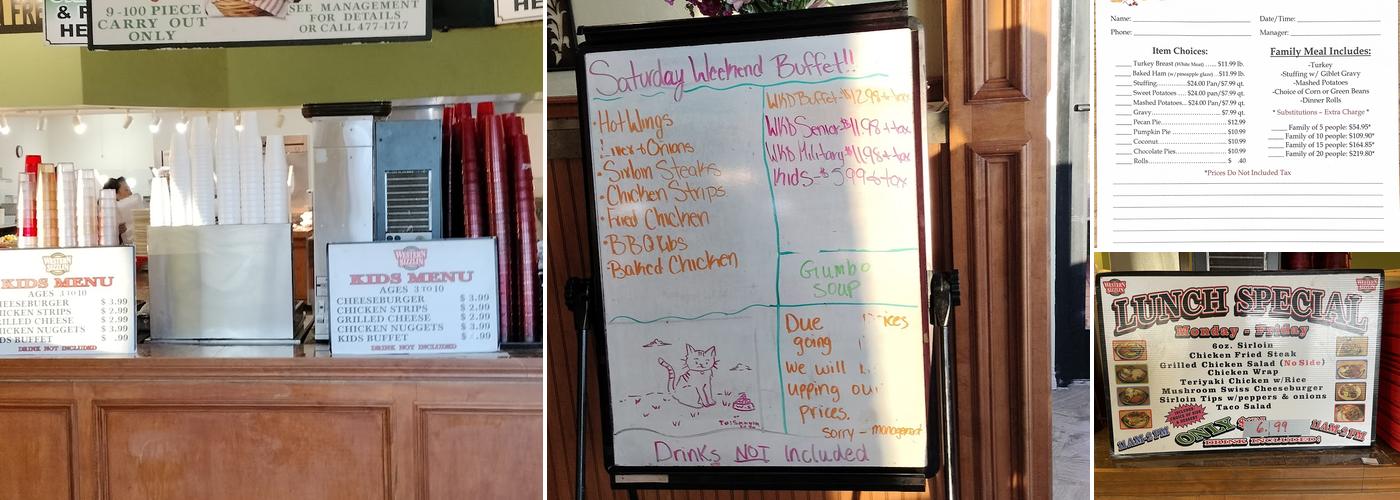 9-100 PIECE
CARRY OUT
ONLY
SEE MANAGEMENT
FOR DETAILS
OR CALL 477-1717
WESTERN
SIZZLIN
KIDS MENU
AGES 3 TO 10
CHEESEBURGER $ 3.99
CHICKEN STRIPS $ 2.99
GRILLED CHEESE $ 2.99
CHICKEN NUGGETS $ 3.99
KIDS BUFFET $ .99
DRINK NOT INCLUDED
WESTERN
SIZZLIN
KIDS MENU
AGES 3 TO 10
CHEESEBURGER $ 3.99
CHICKEN STRIPS $ 2.99
GRILLED CHEESE $ 2.99
CHICKEN NUGGETS $ 3.99
KIDS BUFFET $ .99
DRINK NOT INCLUDED
Saturday Weekend Buffet!!
• Hot Wings
Liver & Onions
• Sirloin Steaks
• Chicken Strips
• Fried Chicken
• BBQ Ribs
• Baked Chicken
WKD Buffet-$12.98 + tax
WKD Senior-$11.98 + tax
WKD Military-$11.98 + tax
Kids-$5.99 + tax
Gumbo
Soup
Due ices
going
we will
upping our
prices.
sorry - management
Drinks NOT Included
Name:
Date/Time:
Phone:
Manager:
Item Choices:
Turkey Breast (White Meat) ..... $11.99 lb.
Baked Ham (w/ pineapple glaze) . $11.99 lb.
Stuffing ........ $24.00 Pan/$7.99 qt.
Sweet Potatoes .... $24.00 Pan/$7.99 qt.
Mashed Potatoes... $24.00 Pan/$7.99 qt.
Gravy ........ $7.99 qt.
Pecan Pie ........ $12.99
Pumpkin Pie ........ $10.99
Coconut ........ $10.99
Chocolate Pies ........ $10.99
Rolls ........ $ .40
Family Meal Includes:
-Turkey
-Stuffing w/ Giblet Gravy
-Mashed Potatoes
-Choice of Corn or Green Beans
-Dinner Rolls
* Substitutions – Extra Charge *
Family of 5 people: $54.95*
Family of 10 people: $109.90*
Family of 15 people: $164.85*
Family of 20 people: $219.80*
*Prices Do Not Included Tax
WESTERN
SIZZLIN
WESTERN
SIZZLIN
LUNCH SPECIAL
Monday - Friday
6oz. Sirloin
Chicken Fried Steak
Grilled Chicken Salad (No Side)
Chicken Wrap
Teriyaki Chicken w/Rice
Mushroom Swiss Cheeseburger
Sirloin Tips w/peppers & onions
Taco Salad
11AM-2 PM
ONLY $ 6.99
11AM-2 PM
DRINK INCLUDED!